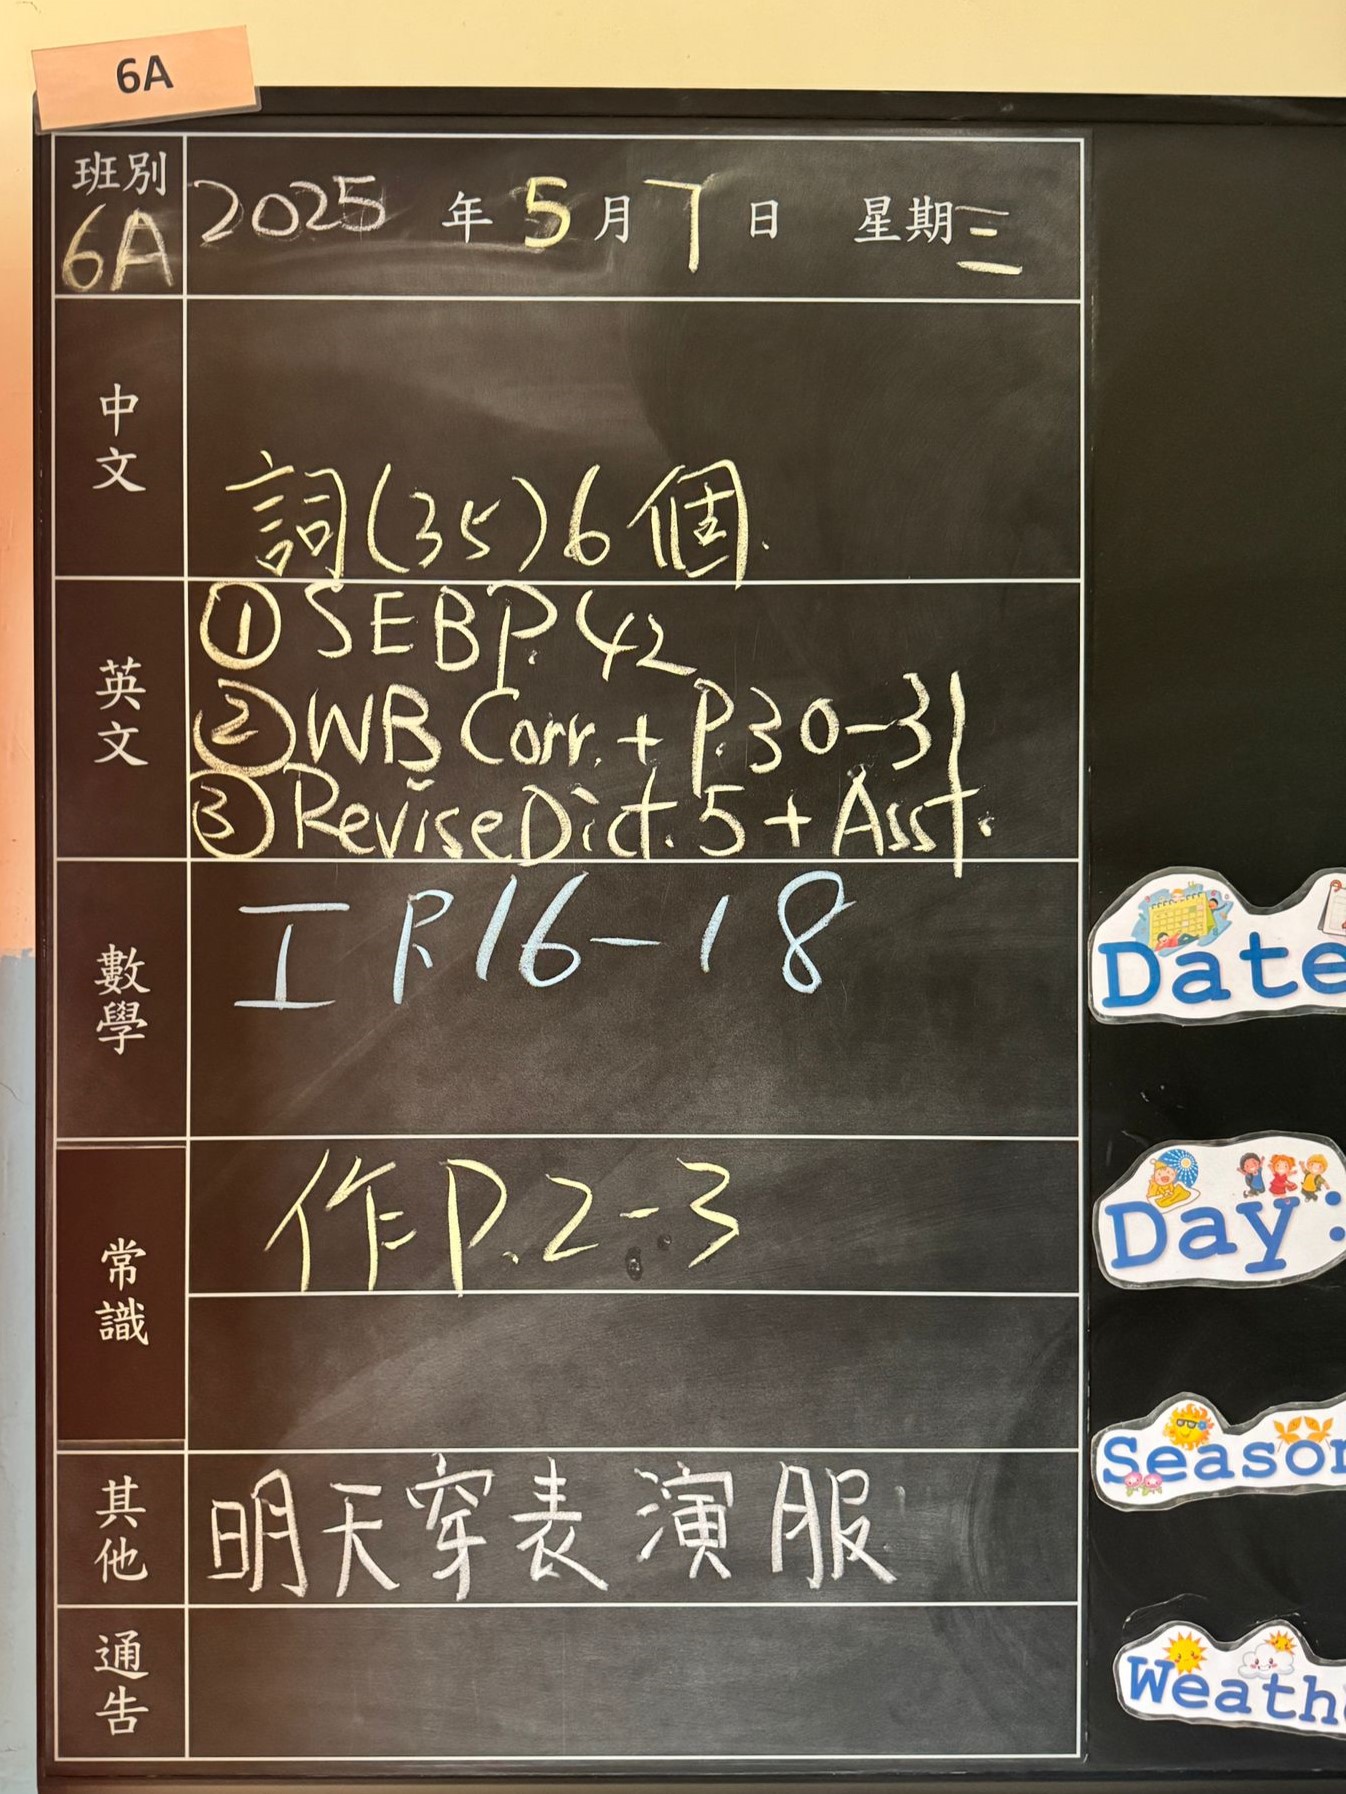 6A
班別 6A 2025 年 5 月 7 日 星期三
中文
詞(35)6個.
英文
① SEB P. 42
② WB Corr. + P.30-31
③ Revise Dict. 5 + Asst.
數學
工 P.16-18
常識
作 P.2-3
其他
明天穿表演服
通告
Date
Day:
Season
Weath